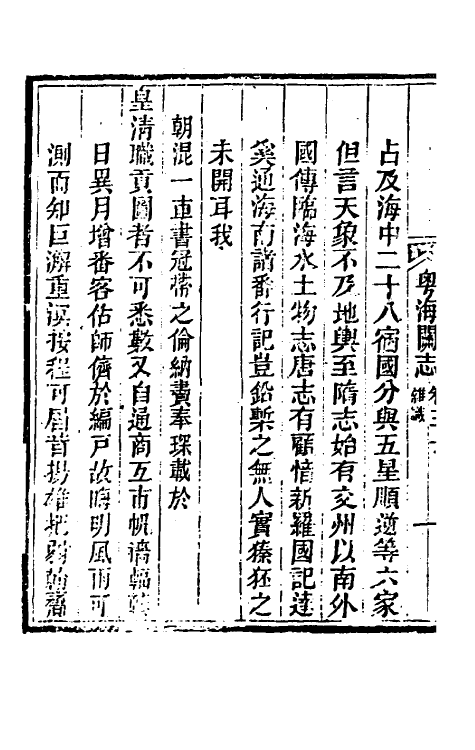 粤海關志 卷三十 雜識 一
占及海中二十八宿國分與五星順逆等六家
但言天象不及地輿至隋志始有交州以南外
國傳臨海水土物志唐志有顧愔新羅國記達
奚通海南諸番行記豈鉛槧之無人實獉狉之
未開耳我
朝混一車書冠帶之倫納賮奉琛載於
皇清職貢圖者不可悉數又自通商互市帆檣輻
日異月增番客估師儕於編戸故晦明風雨可
測而知巨澥重溟按程可屆昔揚雄把弱翰齎